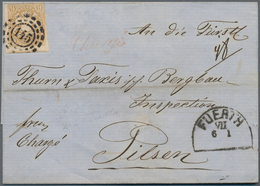 An die Fürstl
145
Thurn & Taxis'sche Bergbau-
Inspection
frei
Chargé
Pilsen
FUERTH
VII
6 1